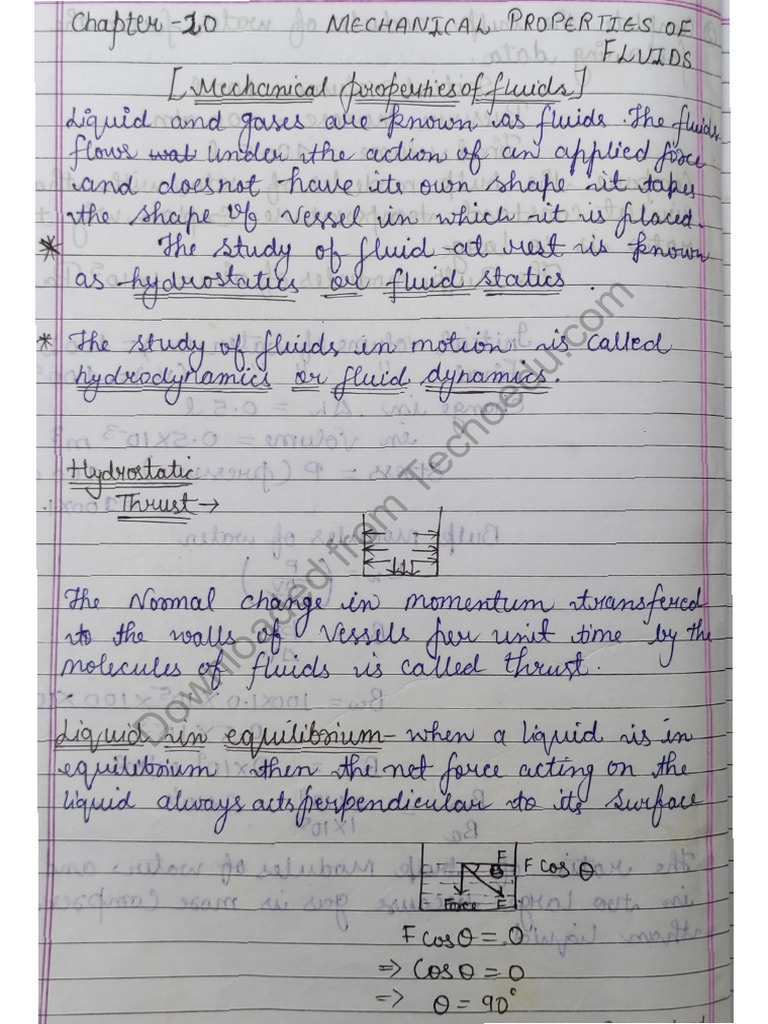 Chapter-10 MECHANICAL PROPERTIES OF
FLUIDS
[Mechanical properties of fluids]
Liquid and gases are known as fluids. The fluids
flows under the action of an applied force
and doesnot have its own shape it takes
the shape of vessel in which it is placed.
* The study of fluid at rest is known
as hydrostatics or fluid statics.
* The study of fluids in motion is called
hydrodynamics or fluid dynamics.
Hydrostatic
Thrust →
The Normal change in momentum transfered
to the walls of vessels per unit time by the
molecules of fluids is called thrust.
Liquid in equilibrium- when a liquid is in
equilibrium then the net force acting on the
liquid always acts perpendicular to its surface
F
θ F cos θ
Force F
F cosθ = 0
⇒ Cosθ = 0
⇒ θ = 90°
Downloaded from Techoedu.com